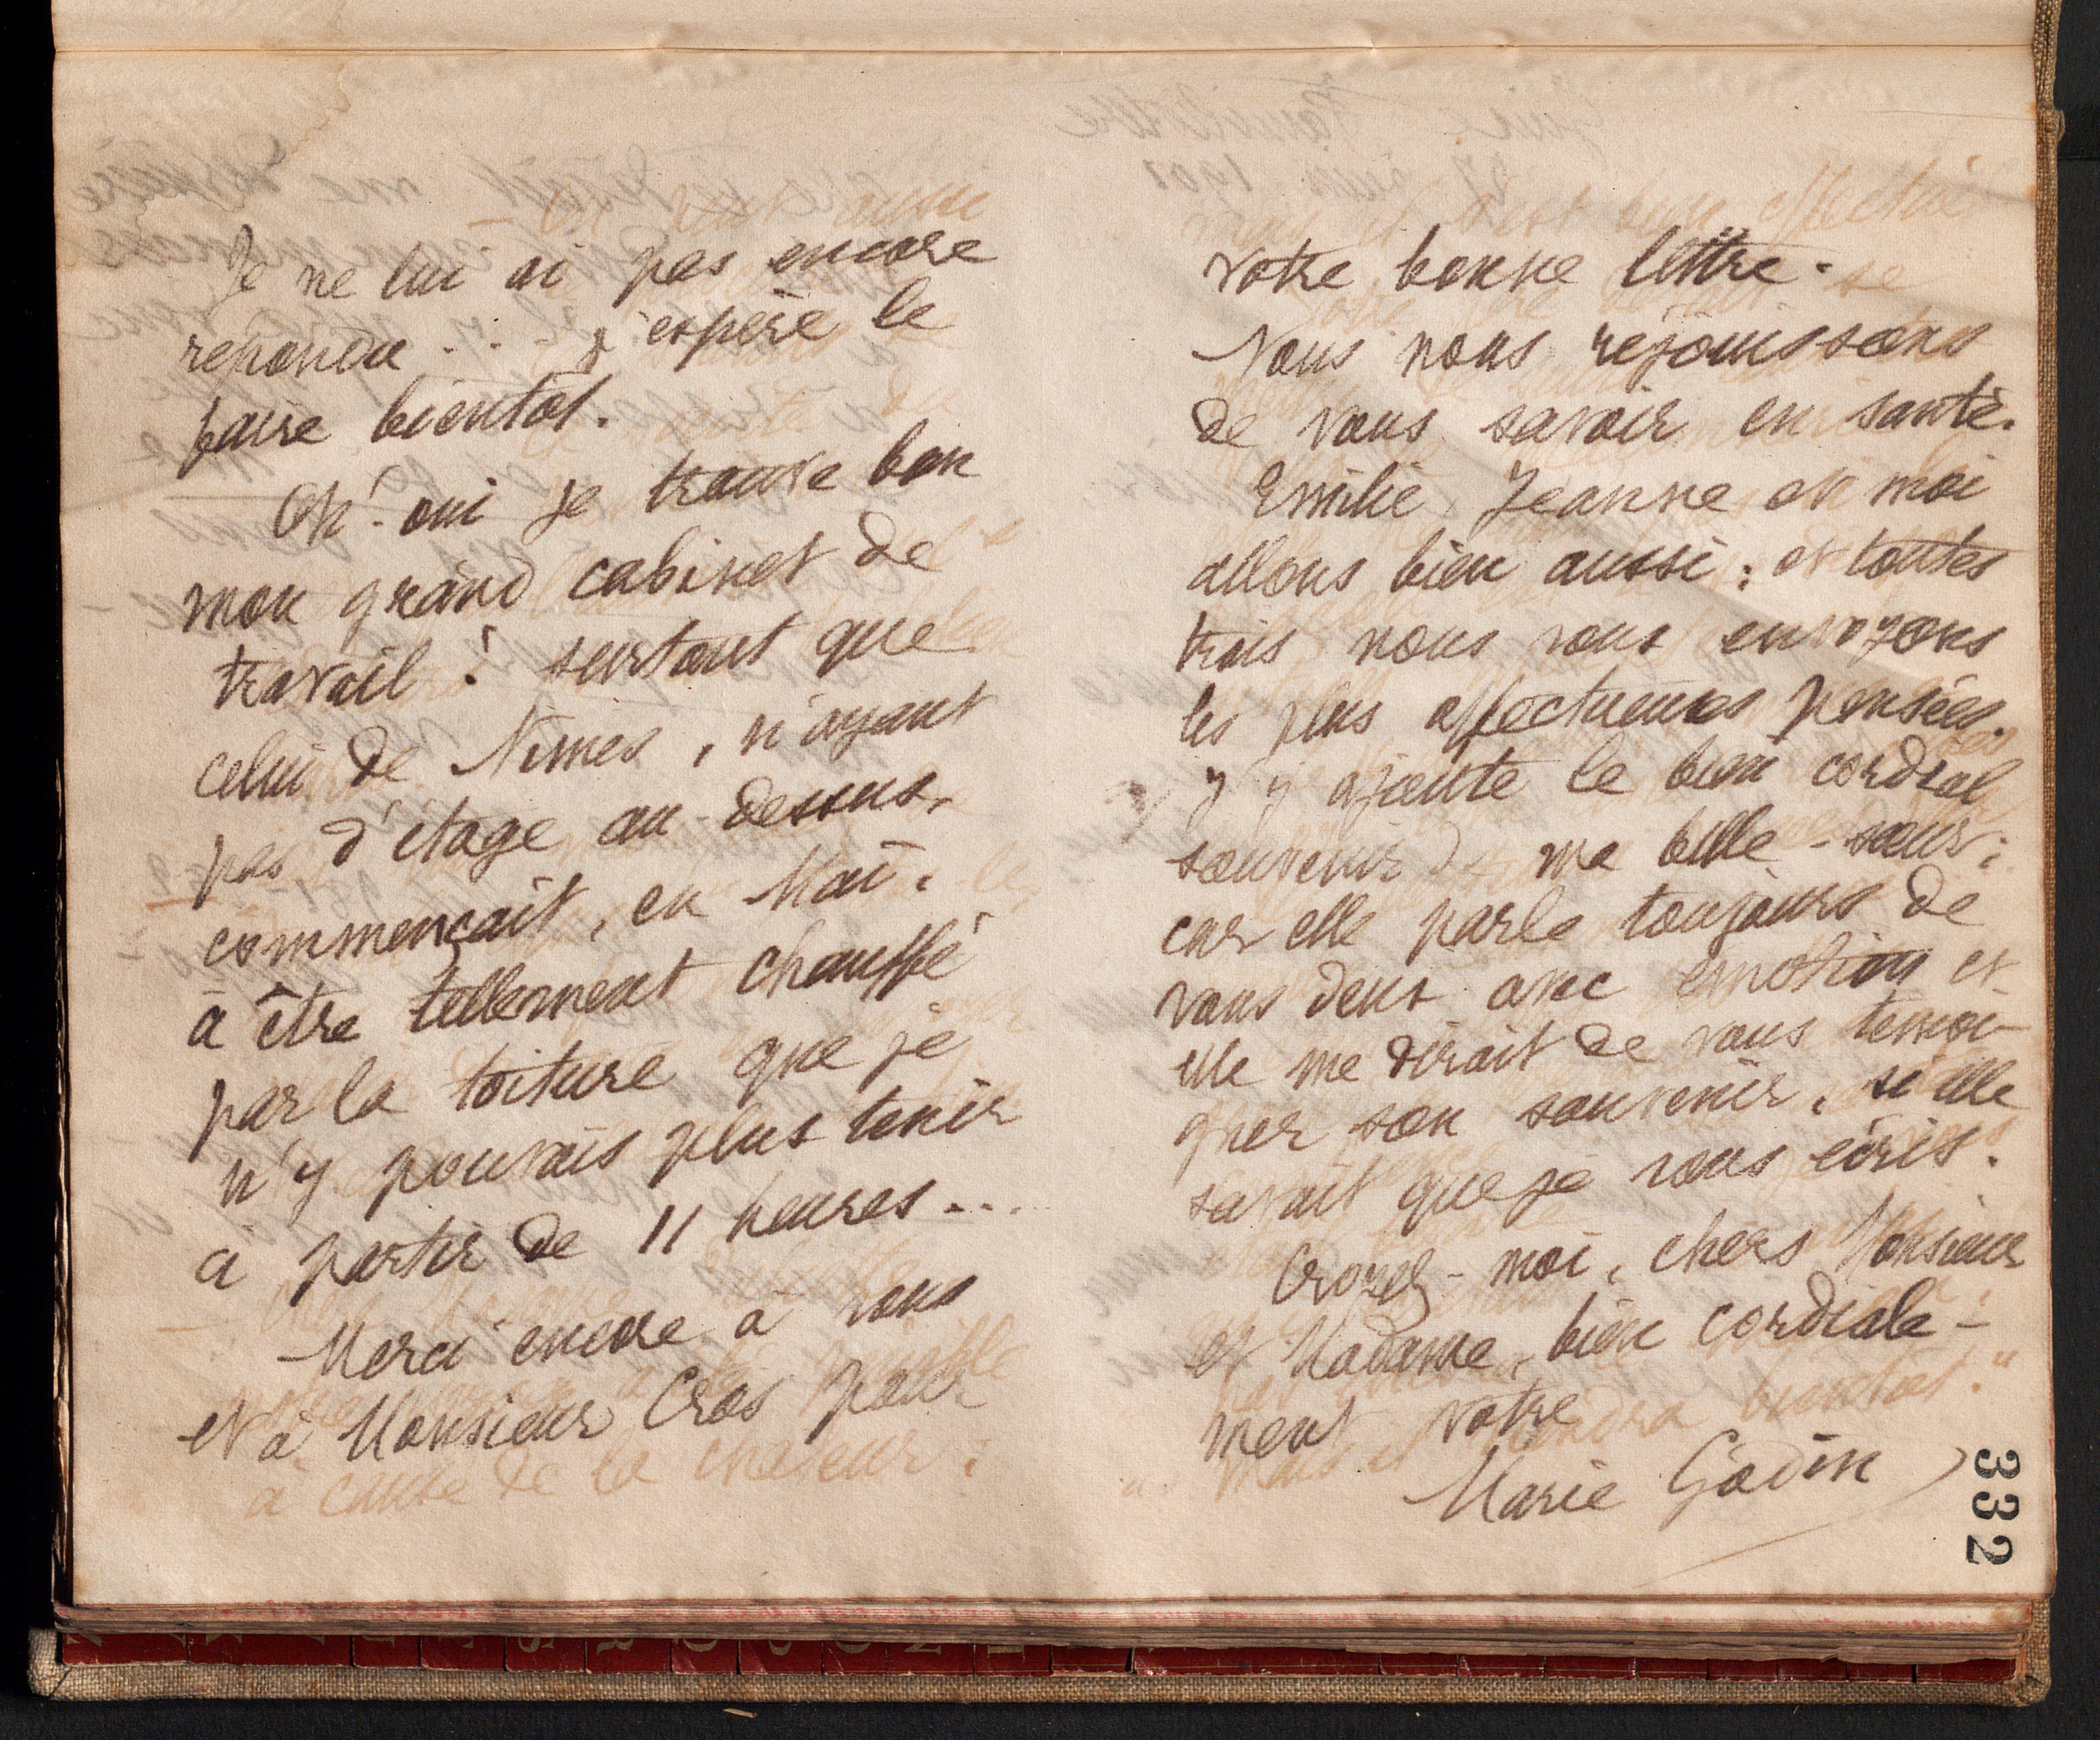 Je ne lui ai pas encore
répondu... J'espère le
faire bientôt.
Oh! oui je trouve bon
mon grand cabinet de
travail! surtout que
celui de Nîmes, n'ayant
pas d'étage au-dessus,
commençait, en Mai,
à être tellement chauffé
par la toiture que je
n'y pouvais plus tenir
à partir de 11 heures...
Merci encore à vous
et à Monsieur Cros pour
votre bonne lettre.
Nous nous réjouissons
de vous savoir en santé.
Emilie, Jeanne et moi
allons bien aussi; et toutes
trois nous vous envoyons
les plus affectueuses pensées.
J'y ajoute le bien cordial
souvenir de ma belle-sœur;
car elle parle toujours de
vous deux avec émotion et
elle me dirait de vous témoi-
gner son souvenir, si elle
savait que je vous écris.
Croyez-moi, chers Monsieur
et Madame, bien cordiale-
ment votre
Marie Godin
332